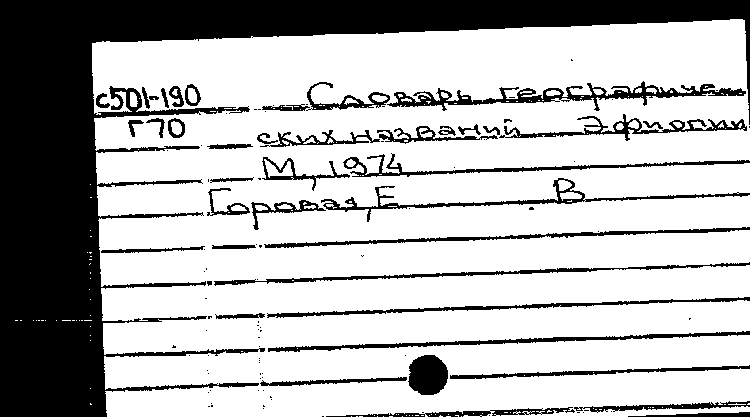 с501-190 Словарь географиче-
Г70 ских названий Эфиопии
М., 1974
Горовая, Е . В